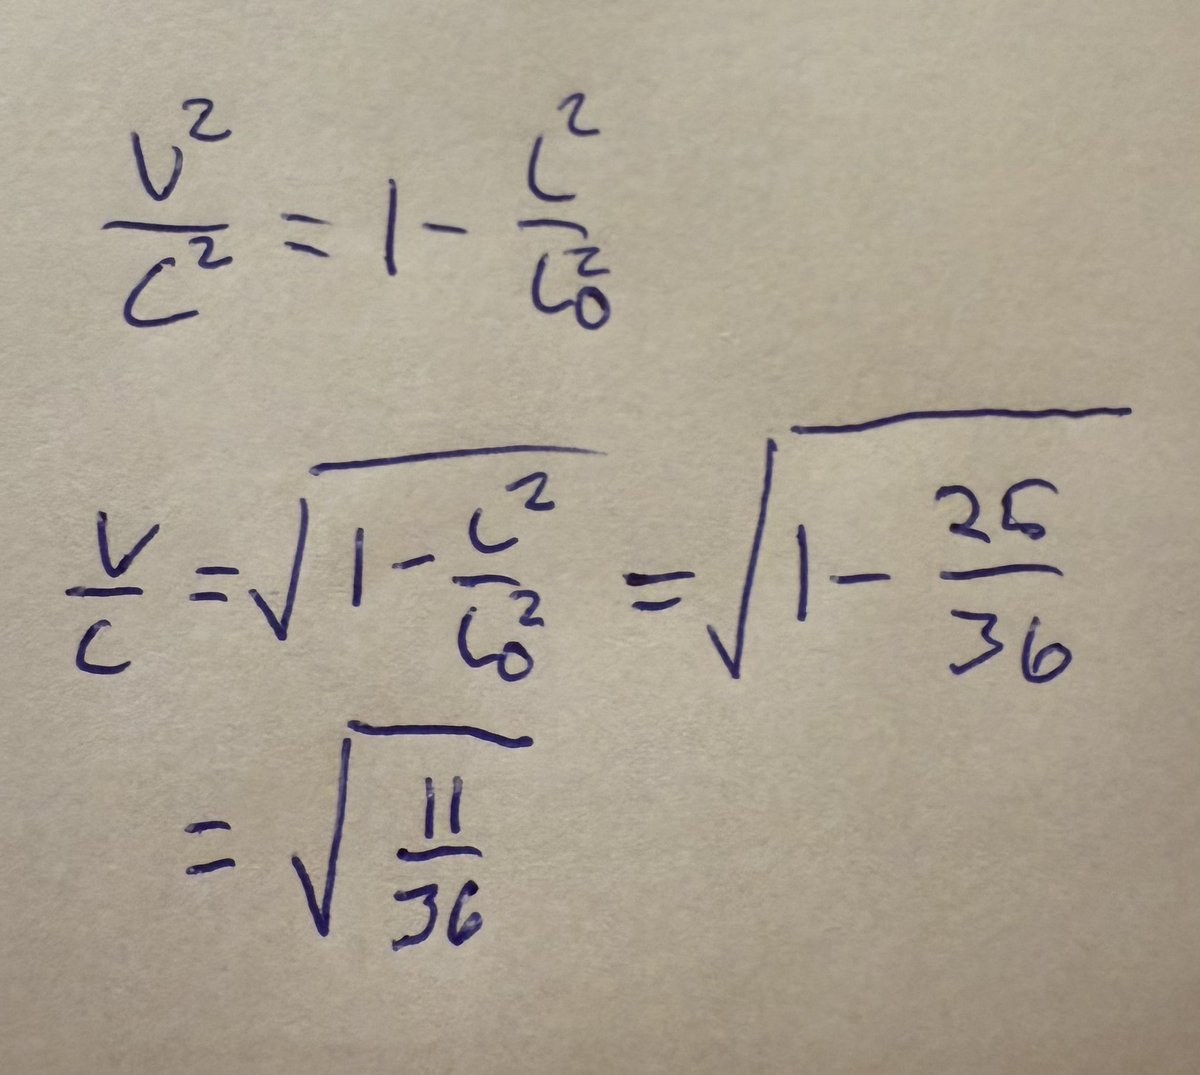 V²/C² = 1 - L²/L₀²
V/C = √(1 - L²/L₀²) = √(1 - 25/36)
= √(11/36)